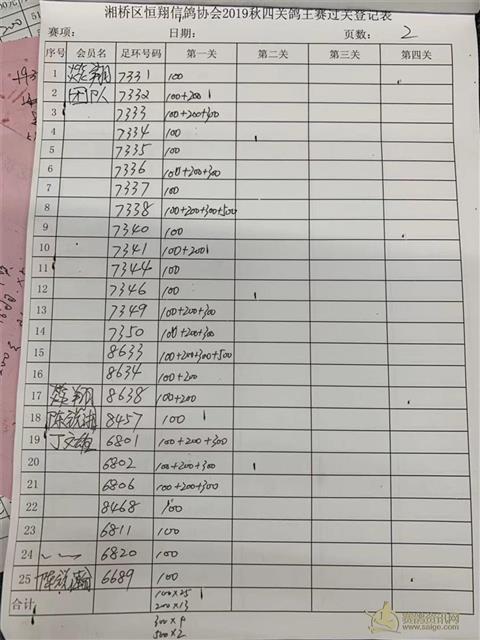 湘桥区恒翔信鸽协会2019秋四关鸽王赛过关登记表
赛项： 日期： 页数：2
序号 会员名 足环号码 第一关 第二关 第三关 第四关
1 翔 7331 100
2 团队 7332 100+200
3 7333 100+200+300
4 7334 100
5 7335 100
6 7336 100+200+300
7 7337 100
8 7338 100+200+300+500
9 7340 100
10 7341 100+200
11 7344 100
12 7346 100
13 7349 100+200+300
14 7350 100+200+300
15 8633 100+200+300+500
16 8634 100+200
17 翔 8638 100+200
18 陈 8457 100
19 丁文雄 6801 100+200+300
20 6802 100+200+300
21 6806 100+200+300
22 8468 100
23 6811 100
24 6820 100
25 陈 6689 100
合计 100×25
200×13
300×9
500×2
赛鸽资讯网
www.saige.com